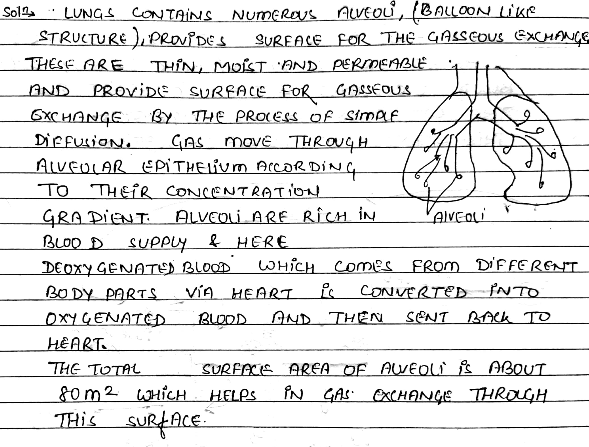 Soln. LUNGS CONTAINS NUMEROUS ALVEOLI, (BALLOON LIKE
STRUCTURE), PROVIDES SURFACE FOR THE GASSEOUS EXCHANGE
THESE ARE THIN, MOIST AND PERMEABLE
AND PROVIDE SURFACE FOR GASSEOUS
EXCHANGE BY THE PROCESS OF SIMPLE
DIFFUSION. GAS MOVE THROUGH
ALVEOLAR EPITHELIUM ACCORDING
TO THEIR CONCENTRATION
GRADIENT. ALVEOLI ARE RICH IN
BLOOD SUPPLY & HERE
DEOXYGENATED BLOOD WHICH COMES FROM DIFFERENT
BODY PARTS VIA HEART IS CONVERTED INTO
OXYGENATED BLOOD AND THEN SENT BACK TO
HEART.
THE TOTAL SURFACE AREA OF ALVEOLI IS ABOUT
80 m2 WHICH HELPS IN GAS EXCHANGE THROUGH
THIS SURFACE.
ALVEOLI